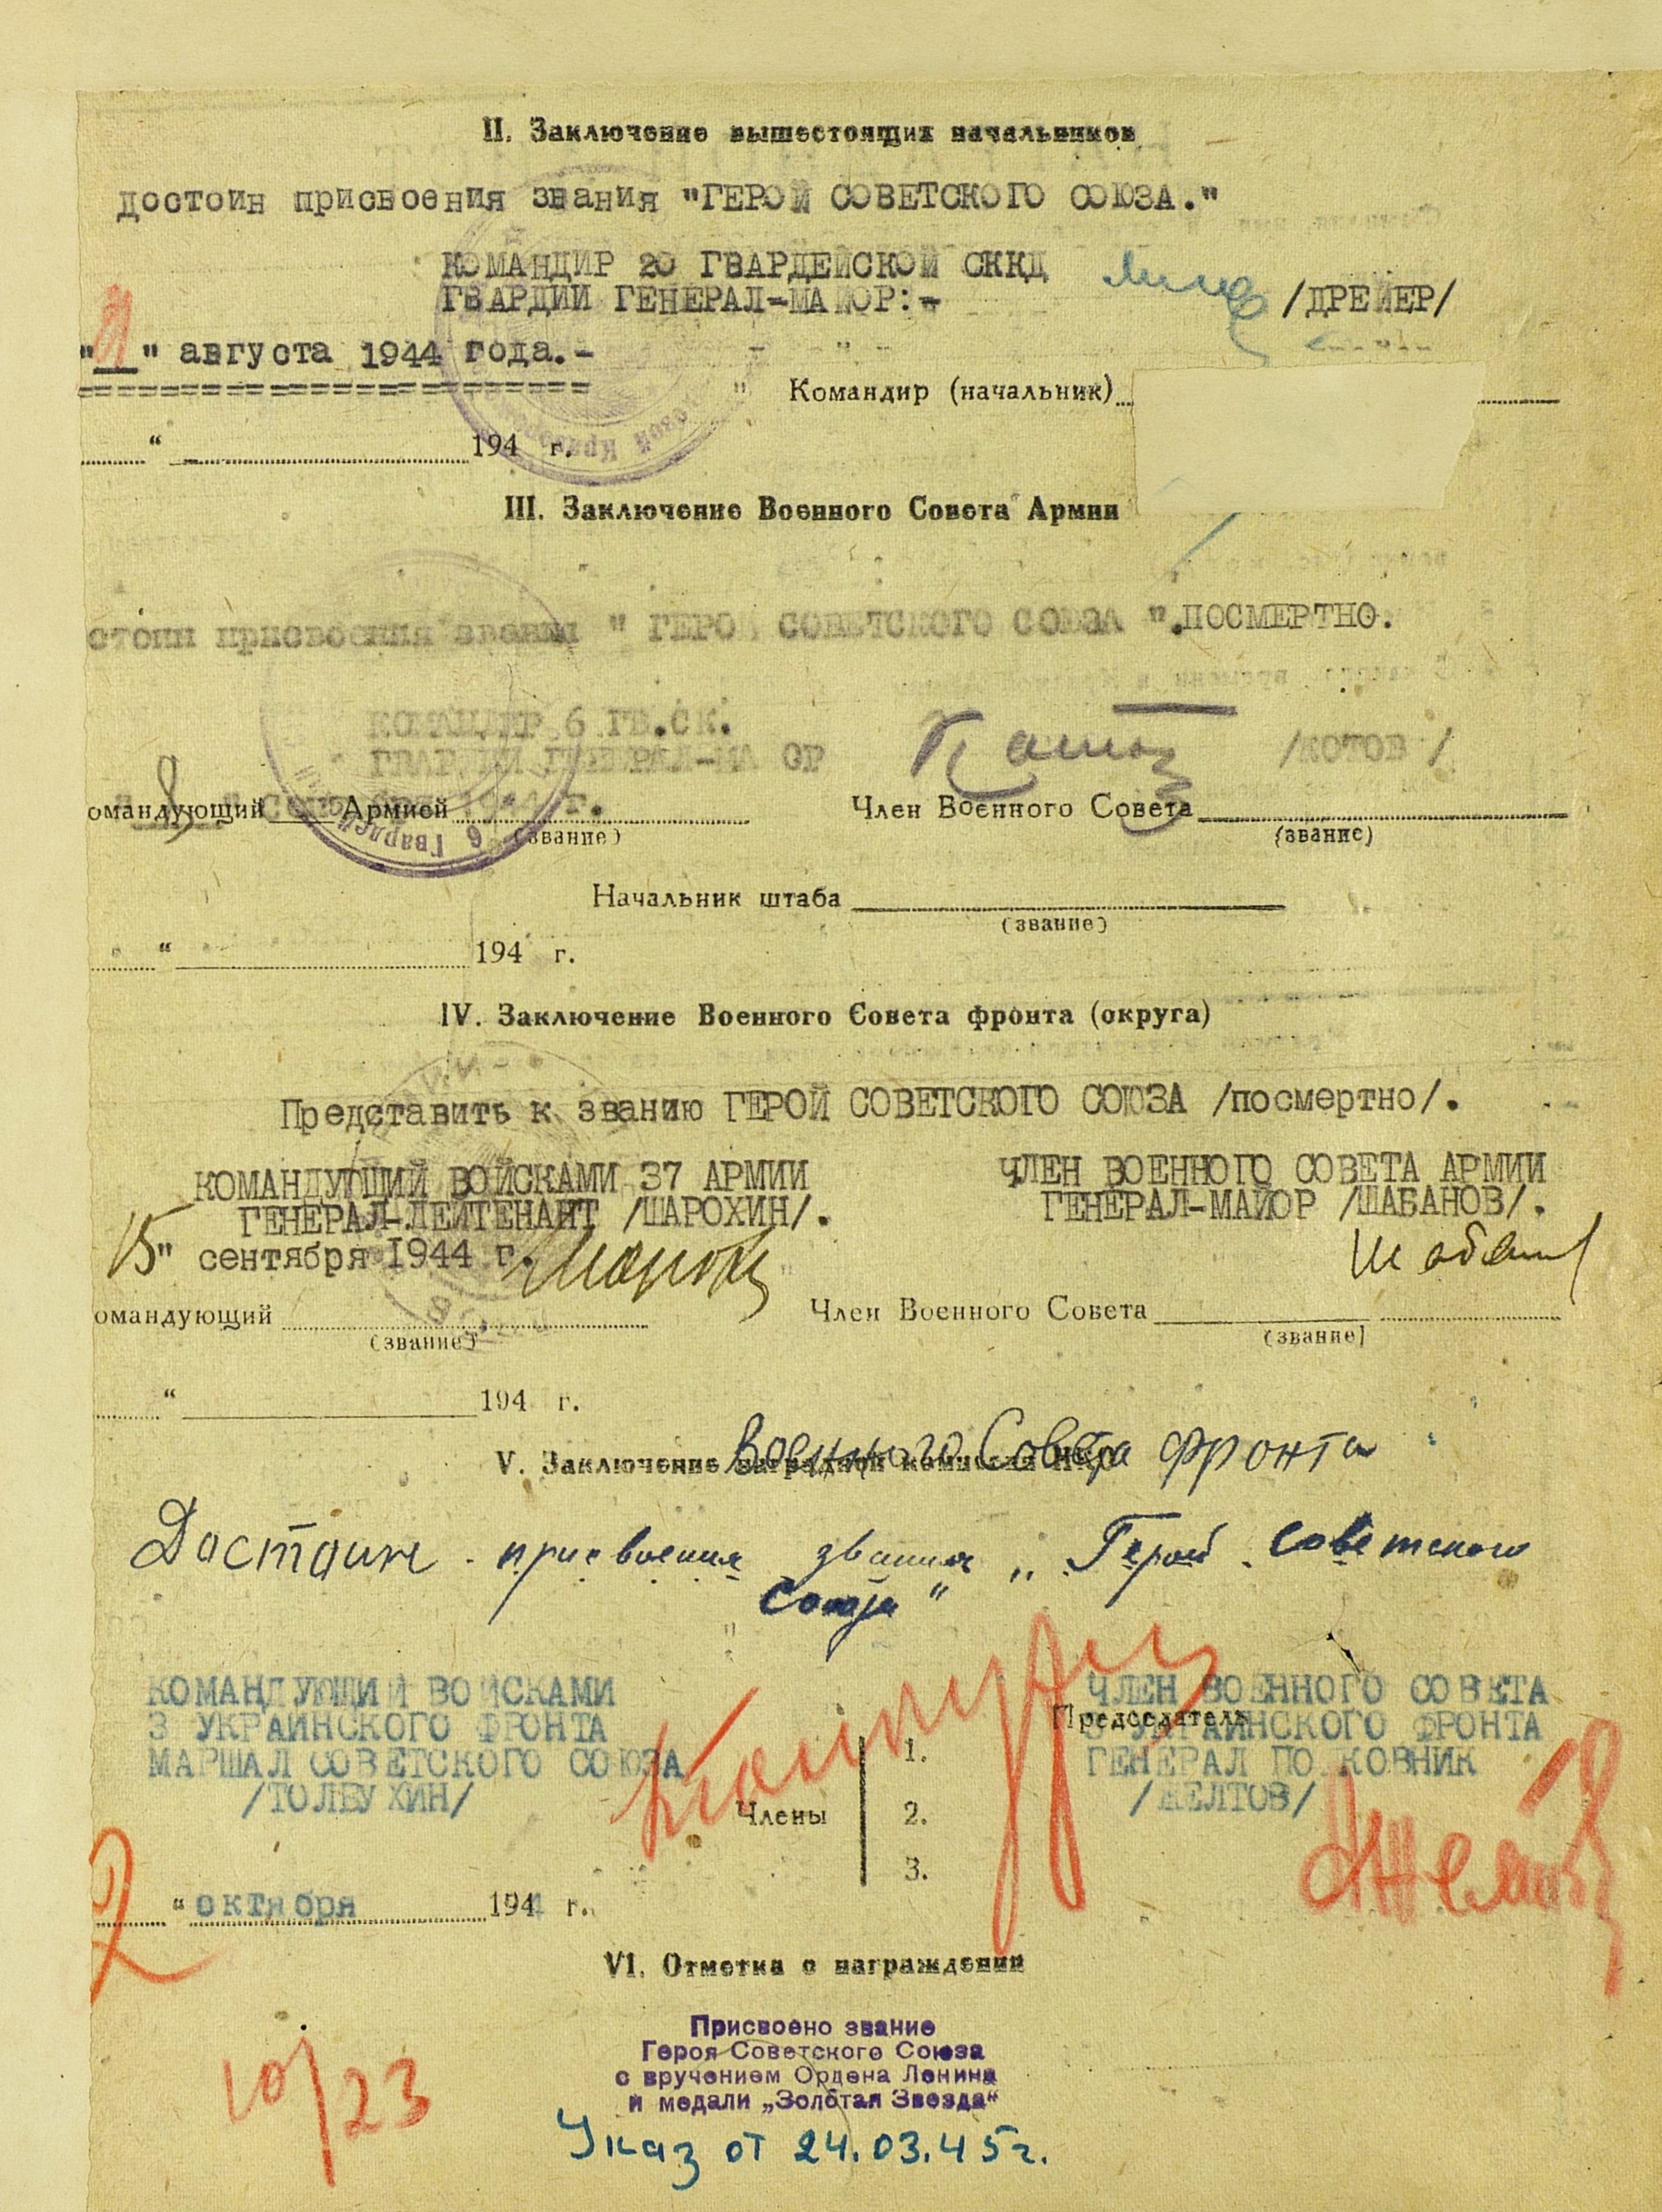 II. Заключение вышестоящих начальников
достоин присвоения звания "ГЕРОЙ СОВЕТСКОГО СОЮЗА."
КОМАНДИР 20 ГВАРДЕЙСКОЙ СККД
ГВАРДИИ ГЕНЕРАЛ-МАЙОР:- /ДРЕЙЕР/
" " августа 1944 года.-
" Командир (начальник)
" 194 г.
III. Заключение Военного Совета Армии
стоин присвоения звания " ГЕРОЙ СОВЕТСКОГО СОЮЗА ".ПОСМЕРТНО.
КОМАНДИР 6 ГВ.СК.
ГВАРДИИ ГЕНЕРАЛ-МАЙОР Котов /КОТОВ /
8
омандующий Армией Член Военного Совета
(звание) (звание)
Начальник штаба
(звание)
" 194 г.
IV. Заключение Военного Совета фронта (округа)
Представить к званию ГЕРОЙ СОВЕТСКОГО СОЮЗА /посмертно/.
КОМАНДУЮЩИЙ ВОЙСКАМИ 37 АРМИИ ЧЛЕН ВОЕННОГО СОВЕТА АРМИИ
ГЕНЕРАЛ-ЛЕЙТЕНАНТ /ШАРОХИН/. ГЕНЕРАЛ-МАЙОР /ШАБАНОВ/.
15" сентября 1944 г.
омандующий Член Военного Совета
(звание) (звание)
" 194 г.
V. Заключение Военного Совета фронта
Достоин присвоения звания „Герой Советского
Союза"
КОМАНДУЮЩИЙ ВОЙСКАМИ ЧЛЕН ВОЕННОГО СОВЕТА
Председатель
3 УКРАИНСКОГО ФРОНТА 3 УКРАИНСКОГО ФРОНТА
МАРШАЛ СОВЕТСКОГО СОЮЗА 1. ГЕНЕРАЛ ПОЛКОВНИК
/ТОЛБУХИН/ Члены 2. /ЖЕЛТОВ/
3.
2 " октября 1944 г.
VI. Отметка о награждении
Присвоено звание
Героя Советского Союза
с вручением Ордена Ленина
и медали „Золотая Звезда"
10/23
Указ от 24.03.45г.